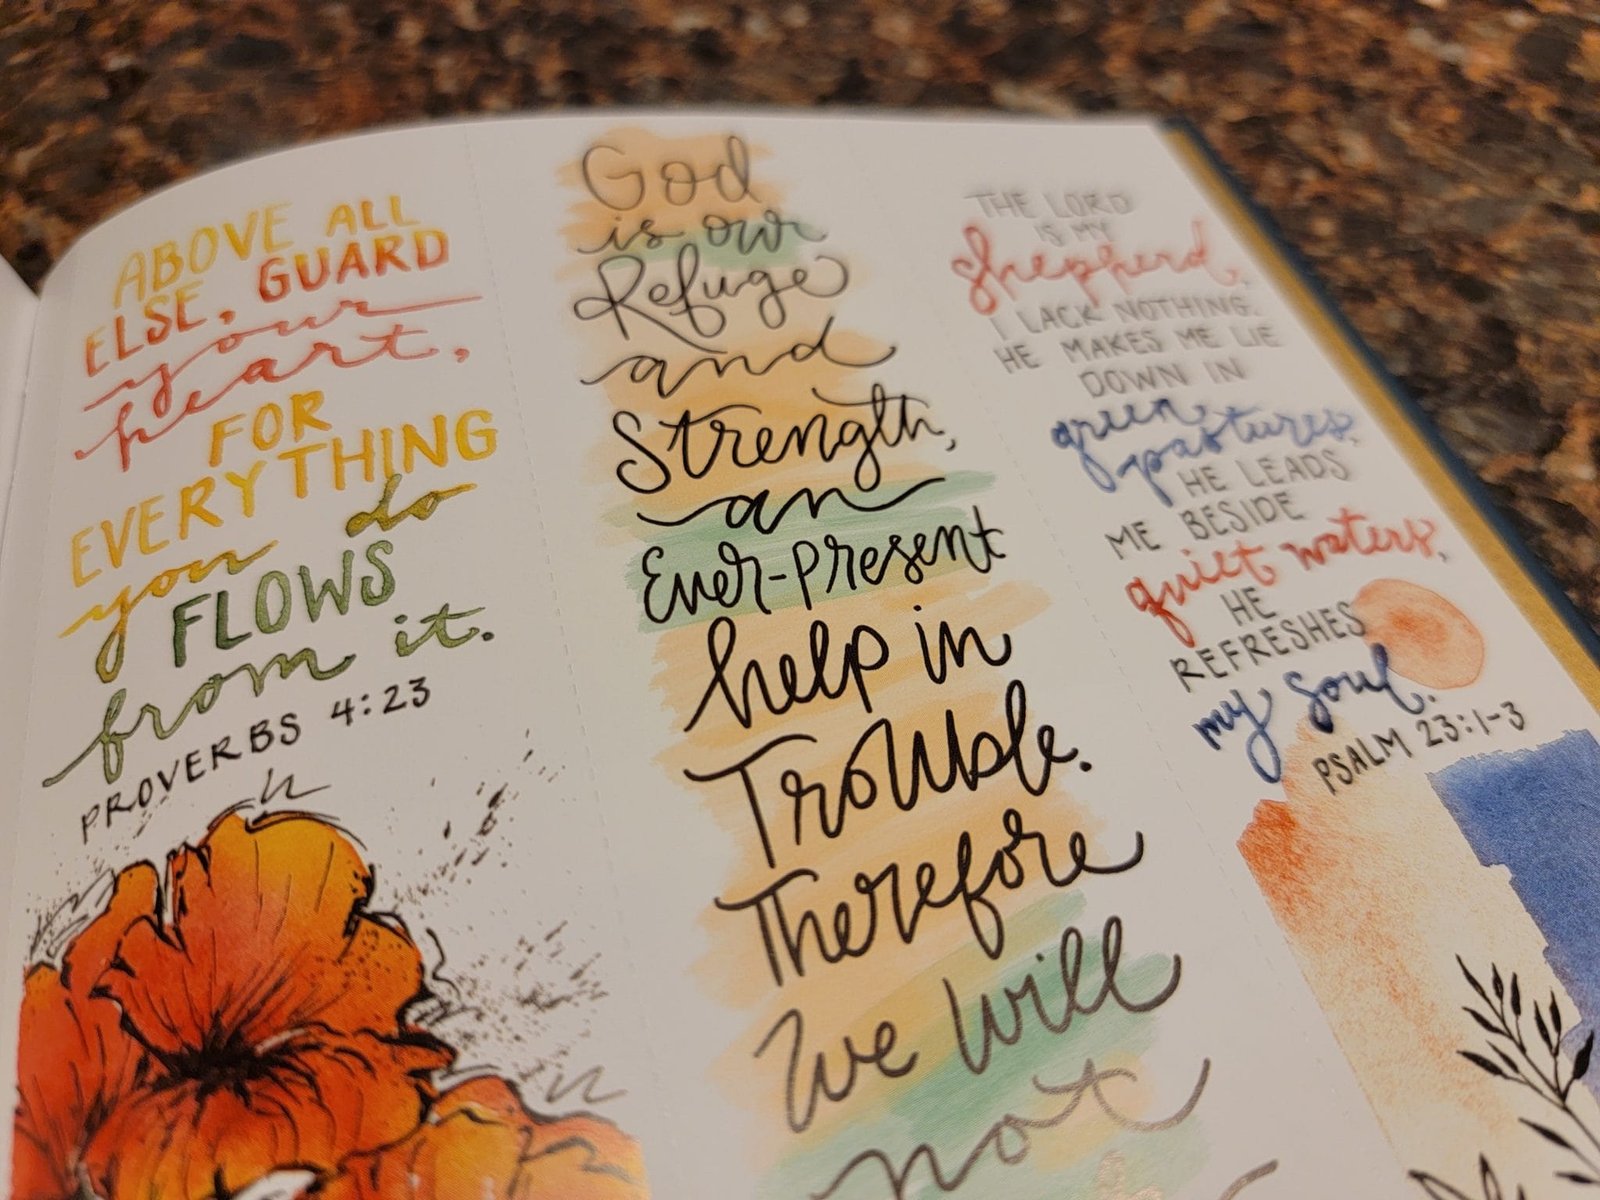 ABOVE ALL
ELSE, GUARD
your
heart,
FOR
EVERYTHING
you do
FLOWS
from it.
PROVERBS 4:23
God
is our
Refuge
and
Strength,
an
Ever-Present
help in
Trouble.
Therefore
We Will
not
THE LORD
IS MY
Shepherd,
I LACK NOTHING.
HE MAKES ME LIE
DOWN IN
green
pastures,
HE LEADS
ME BESIDE
quiet waters,
HE
REFRESHES
my soul.
PSALM 23:1-3